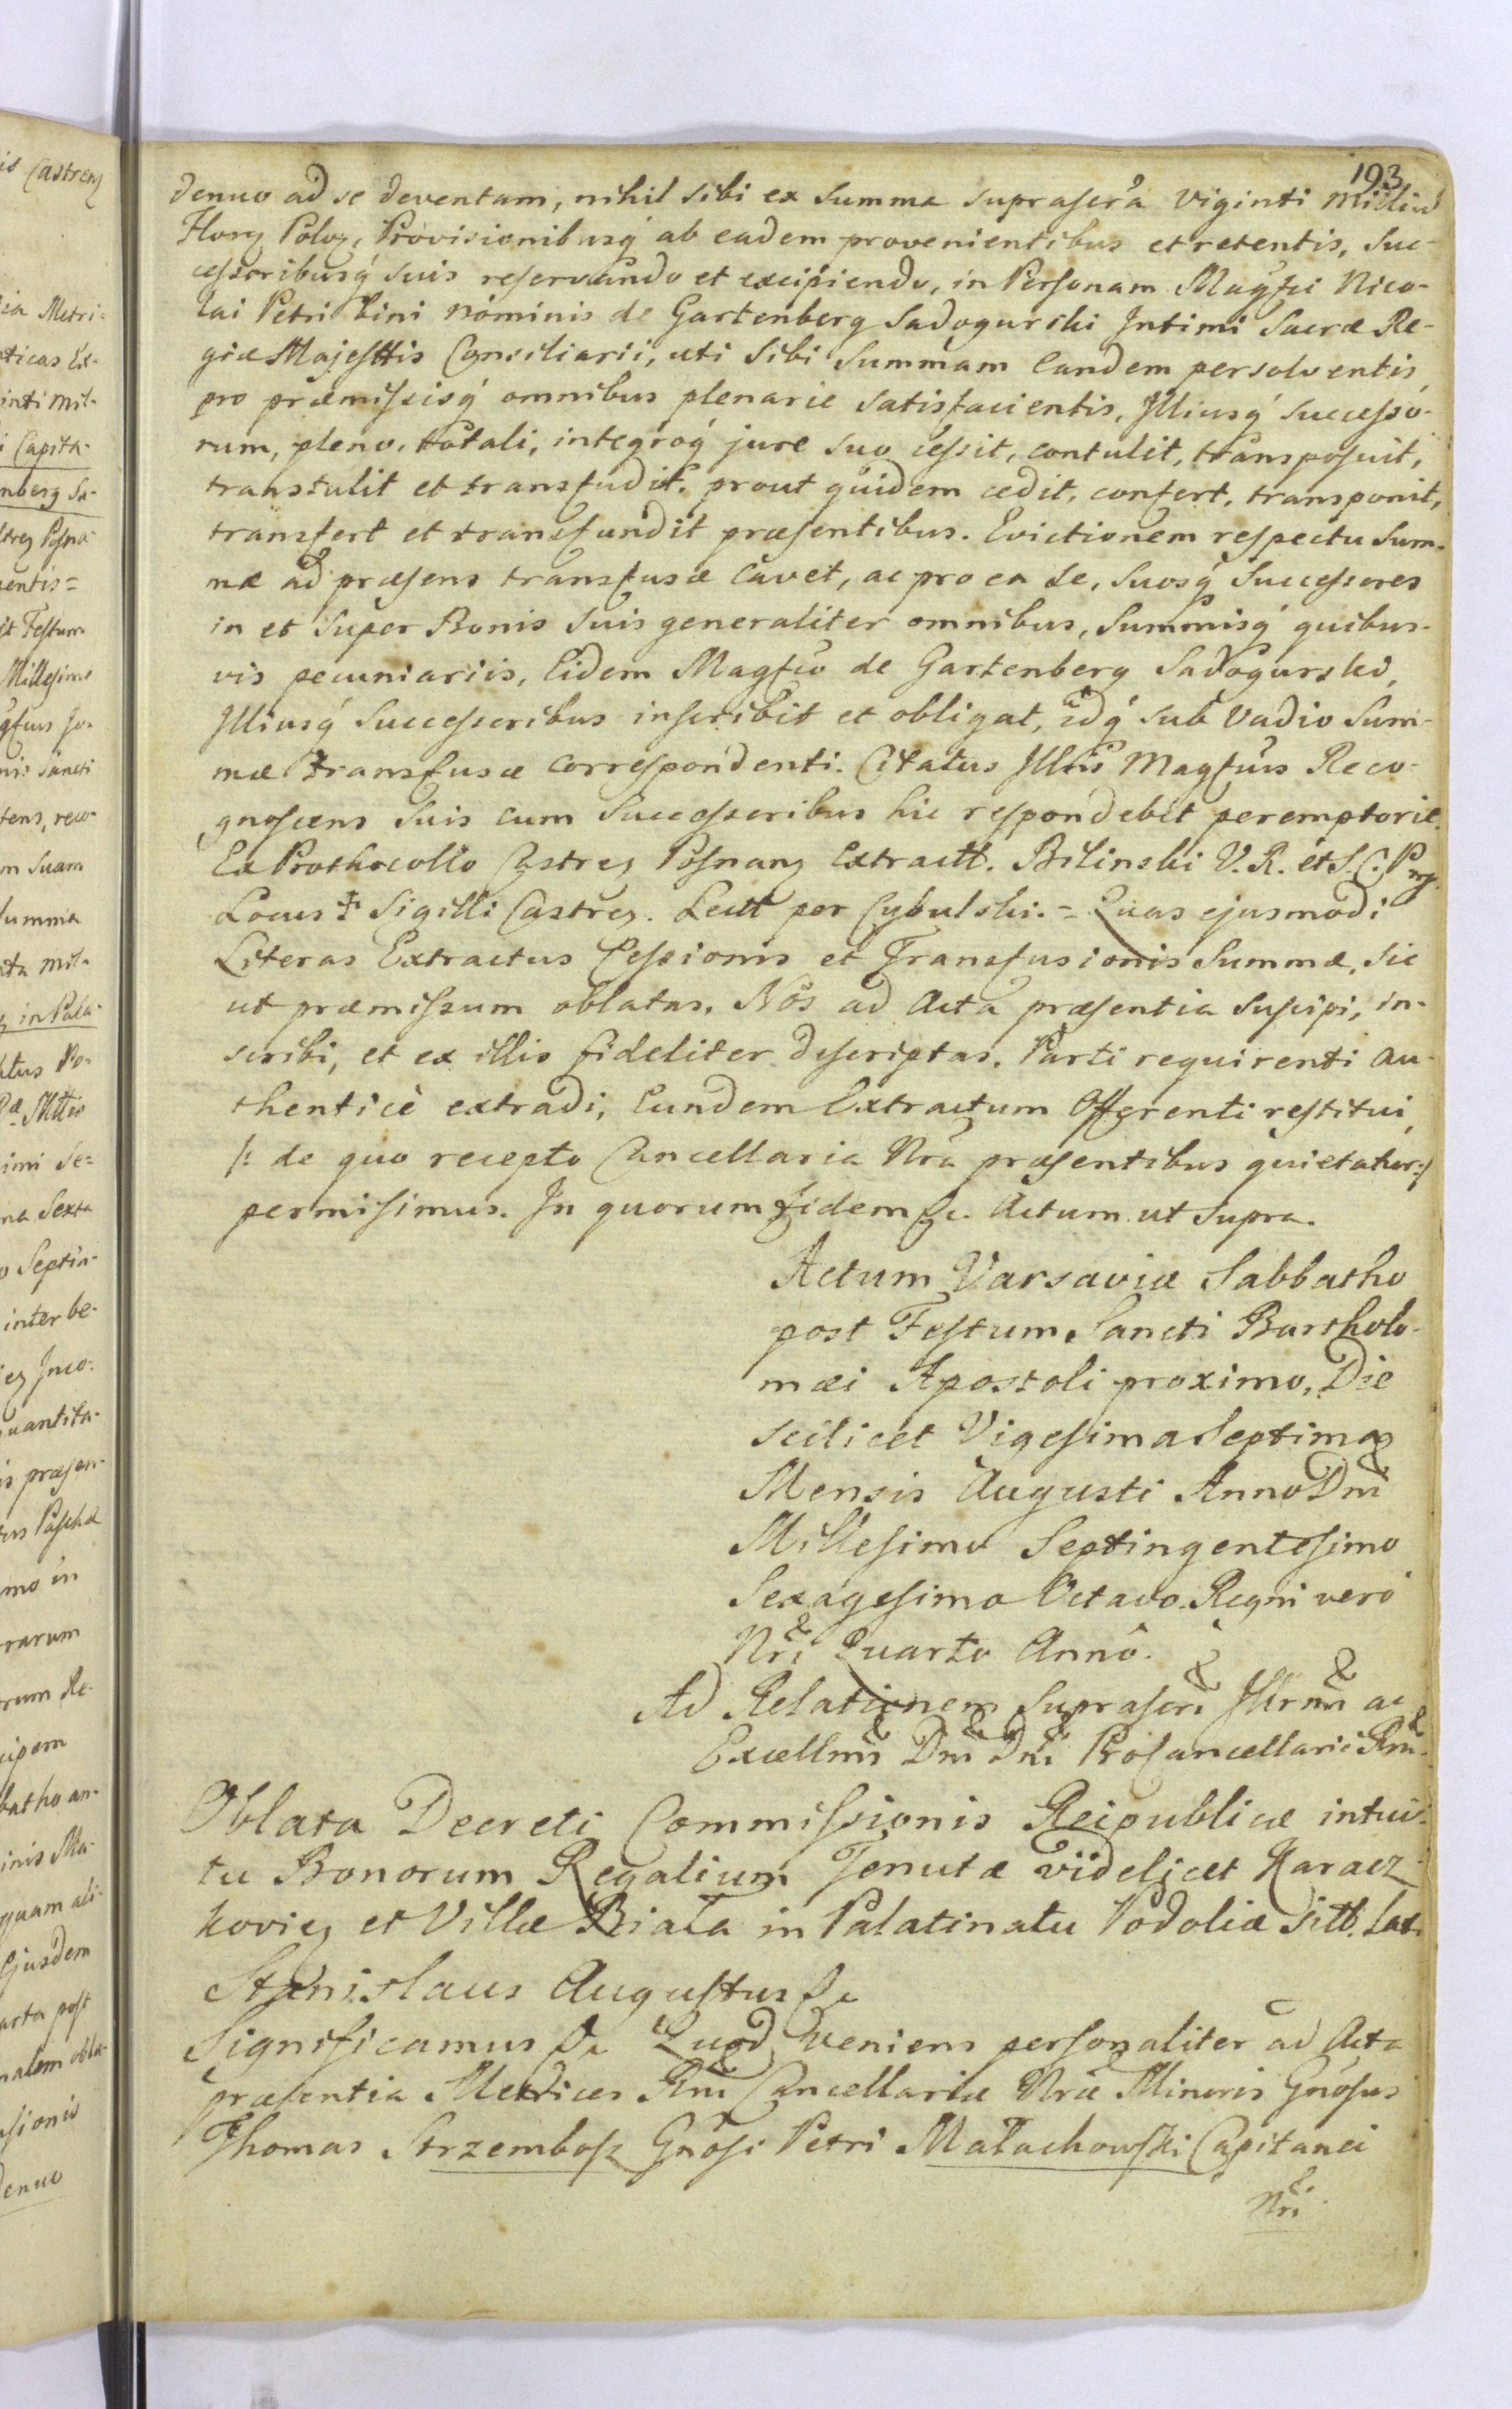 193
denuo ad se deventam, nihil sibi ex Summa suprascra Viginti Milliū
Floreɳ Poloɳ, Provisionibusq́ ab eadem provenientibus et retentis, Suc-
cessoribusq́ suis reservando et excipiendo, in Personam Magfci Nico-
lai Petri bini nominis de Gartenberg Sadogurski Intimi Sacræ Re-
giæ Majesttis Consiliarii, uti sibi Summam eandem persolventis,
pro præmissisq́ omnibus plenarie satisfacientis, Illiusq́ Successo-
rum, pleno, totali, integroq́ jure suo cessit, contulit, transposuit,
transtulit et transfudit. prout quidem cedit, confert, transponit,
transfert et transfundit præsentibus. Evictionem respectu Sum-
mæ ad præsens transfusæ cavet, ac pro ea se, suosq́ Successores
in et super Bonis suis generaliter omnibus, Summisq́ quibus-
vis pecuniariis, Eidem Magfco de Gartenberg Sadogurski,
Illiusq́ Successoribus inscribit et obligat, idq́ sub vadio Sum-
mæ transfusæ correspondenti. Citatus Illris Magfcus Reco-
gnoscens suis cum Successoribus hic respondebit peremptorie.
Ex Prothocollo Castreɳ Posnanɳ Extractt. Bilinski V. R. et S. C. P mp.
Locus ‡ Sigilli Castreɳ. Lectt per Cybulski. = Quas ejusmodi
Literas Extractus Cessionis et Transfusionis Summæ, sic
ut præmissum oblatas, Nos ad Acta præsentia suscipi, in-
scribi, et ex illis fideliter descriptas, Parti requirenti au-
thenticè extradi, Eundem Extractum Offerenti restitui,
/: de quo recepto Cancellaria Nra præsentibus quietatur :/
permisimus. In quorum fidem &c. Actum ut supra.
Actum Varsaviæ Sabbatho
post Festum Sancti Bartholo-
mæi Apostoli proximo, Die
scilicet Vigesima Septima
Mensis Augusti Anno Dni
Millesimo Septingentesimo
Sexagesimo Octavo. Regni verò
Nri Quarto Annô.
Ad Relationem suprascri Illrmi ac
Excellmi Dni Dni Procancellarii Rni.
Oblata Decreti Commissionis Reipublicæ intui-
tu Bonorum Regalium Tenutæ videlicet Karacz-
kovieɳ et Villæ Biała in Palatinatu Podoliæ sitt. Lat.
Stanislaus Augustus &c
Significamus &c Quod veniens personaliter ad Acta
præsentia Metrices Rni Cancellariæ Nræ Minoris Gnosus
Thomas Strzembosz Gnosi Petri Małachowski Capitanei
Nri